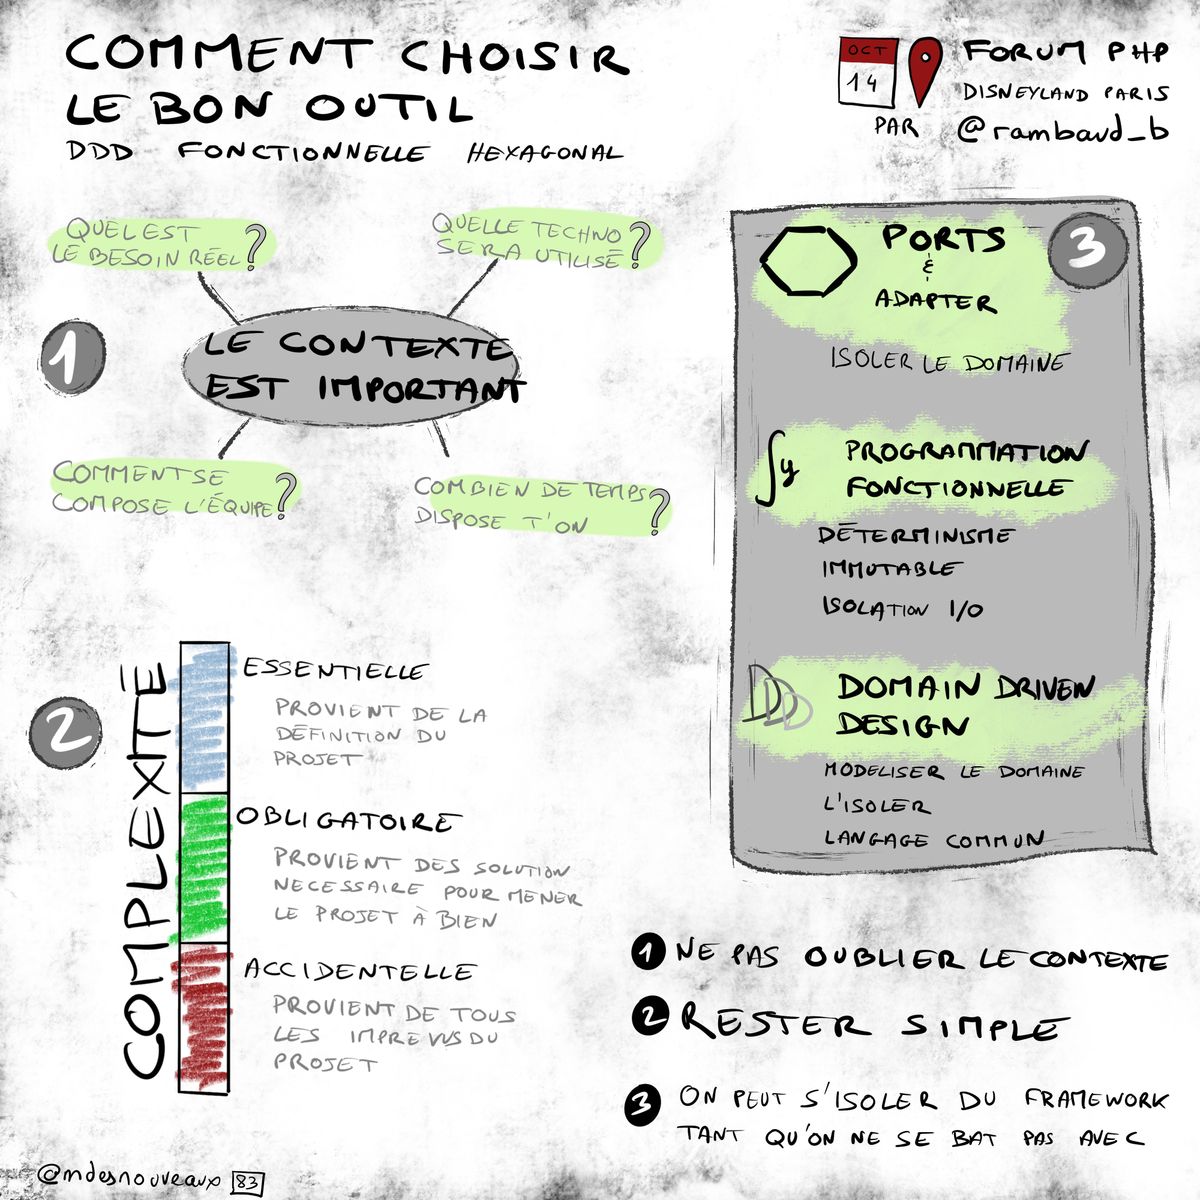 COMMENT CHOISIR
LE BON OUTIL
DDD FONCTIONNELLE HEXAGONAL
OCT
14
FORUM PHP
DISNEYLAND PARIS
PAR @rambaud_b
1
QUEL EST
LE BESOIN RÉEL ?
QUELLE TECHNO
SERA UTILISÉ ?
LE CONTEXTE
EST IMPORTANT
COMMENT SE
COMPOSE L'ÉQUIPE ?
COMBIEN DE TEMPS
DISPOSE T'ON ?
2
COMPLEXITÉ
ESSENTIELLE
PROVIENT DE LA
DÉFINITION DU
PROJET
OBLIGATOIRE
PROVIENT DES SOLUTION
NECESSAIRE POUR MENER
LE PROJET À BIEN
ACCIDENTELLE
PROVIENT DE TOUS
LES IMPREVUS DU
PROJET
3
PORTS
&
ADAPTER
ISOLER LE DOMAINE
∫y
PROGRAMMATION
FONCTIONNELLE
DÉTERMINISME
IMMUTABLE
ISOLATION I/O
DDD
DOMAIN DRIVEN
DESIGN
MODELISER LE DOMAINE
L'ISOLER
LANGAGE COMMUN
1 NE PAS OUBLIER LE CONTEXTE
2 RESTER SIMPLE
3 ON PEUT S'ISOLER DU FRAMEWORK
TANT QU'ON NE SE BAT PAS AVEC
@mdesnouveaux 83